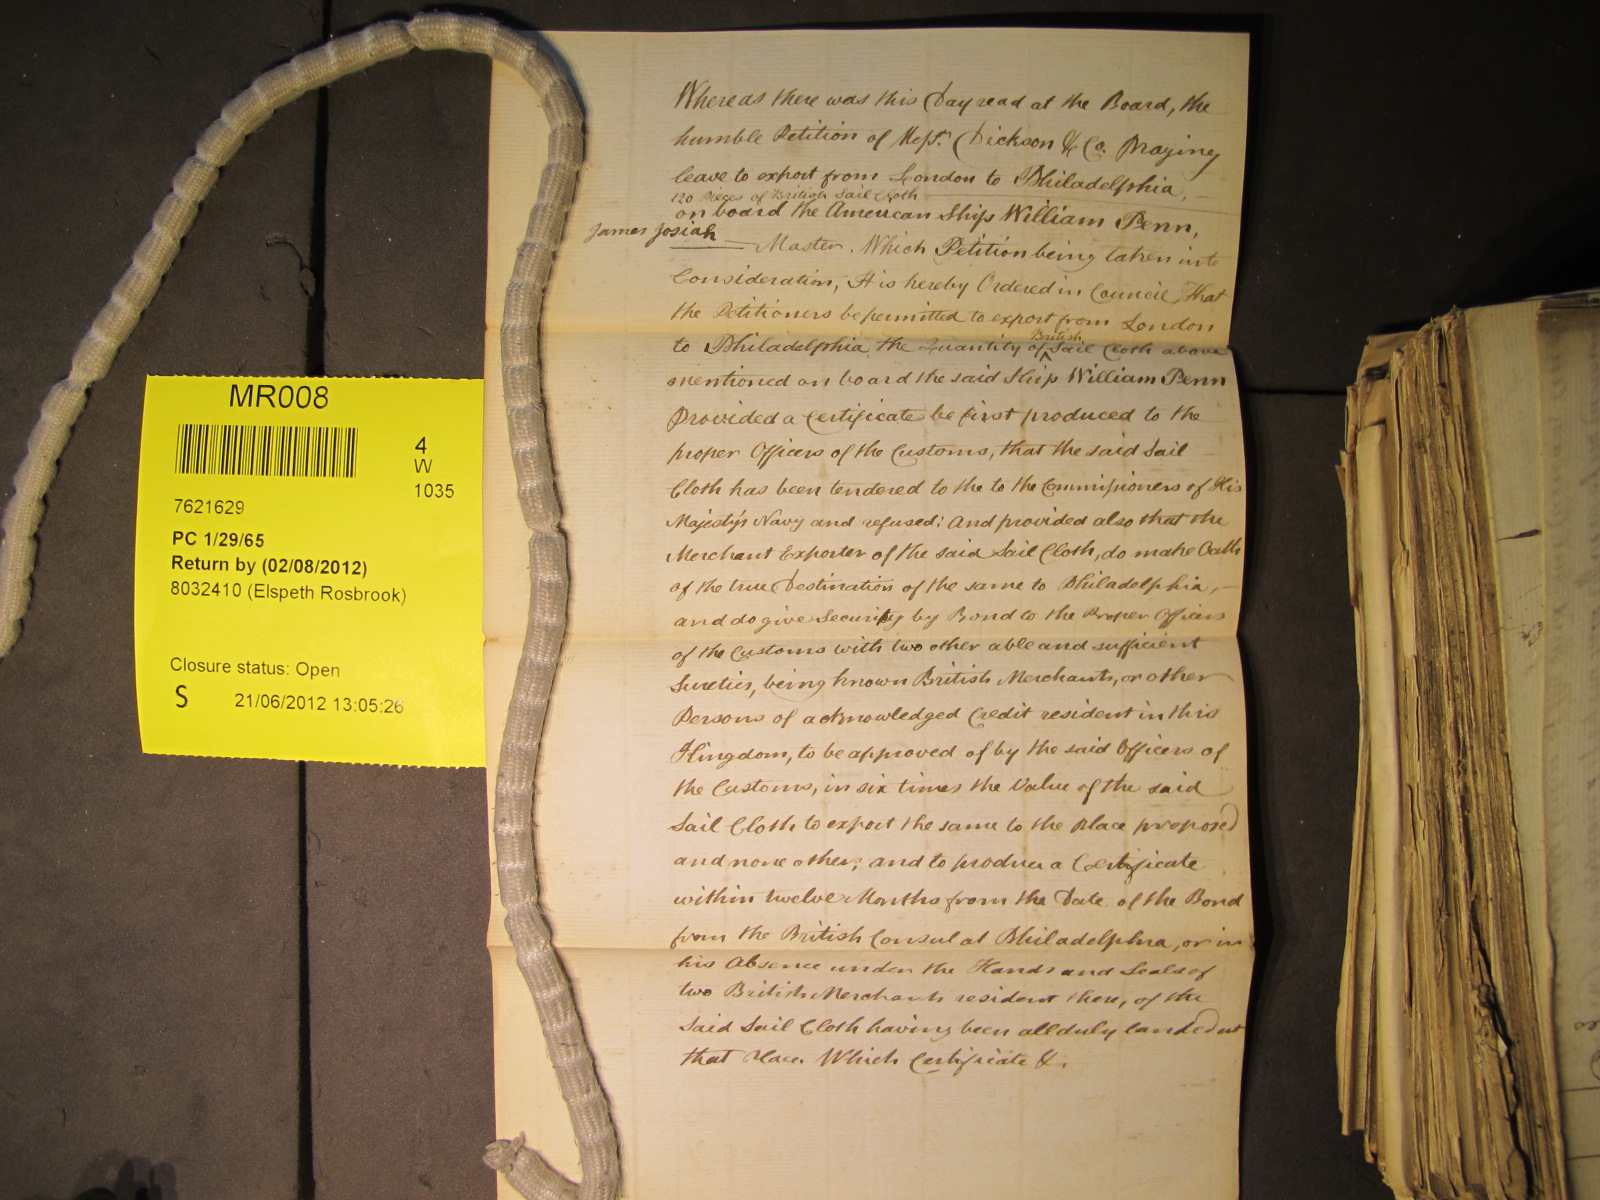 Whereas there was this Day read at the Board, the
humble Petition of Messrs. Dickson & Co. Praying
leave to export from London to Philadelphia,
120 Pieces of British Sail Cloth
on board the American Ship William Penn,
James Josiah
Master. Which Petition being taken into
Consideration, It is hereby Ordered in Council, That
the Petitioners be permitted to export from London
British
to Philadelphia the Quantity of Sail Cloth above
mentioned on board the said Ship William Penn
Provided a Certificate be first produced to the
proper Officers of the Customs, that the said Sail
Cloth has been tendered to the to the Commissioners of His
Majesty's Navy and refused; And provided also that the
Merchant Exporter of the said Sail Cloth, do make Oath
of the true Destination of the same to Philadelphia,
and do give Security by Bond to the Proper Officers
of the Customs with two other able and sufficient
Sureties, being known British Merchants, or other
Persons of acknowledged Credit resident in this
Kingdom, to be approved of by the said Officers of
the Customs, in six times the Value of the said
Sail Cloth to export the same to the Place proposed
and none other; and to produce a Certificate
within twelve Months from the Date of the Bond
from the British Consul at Philadelphia, or in
his Absence under the Hands and Seals of
two British Merchants resident there, of the
Said Sail Cloth having been all duly landed at
that Place. Which Certificate &c.
MR008
4
W
1035
7621629
PC 1/29/65
Return by (02/08/2012)
8032410 (Elspeth Rosbrook)
Closure status: Open
S 21/06/2012 13:05:26